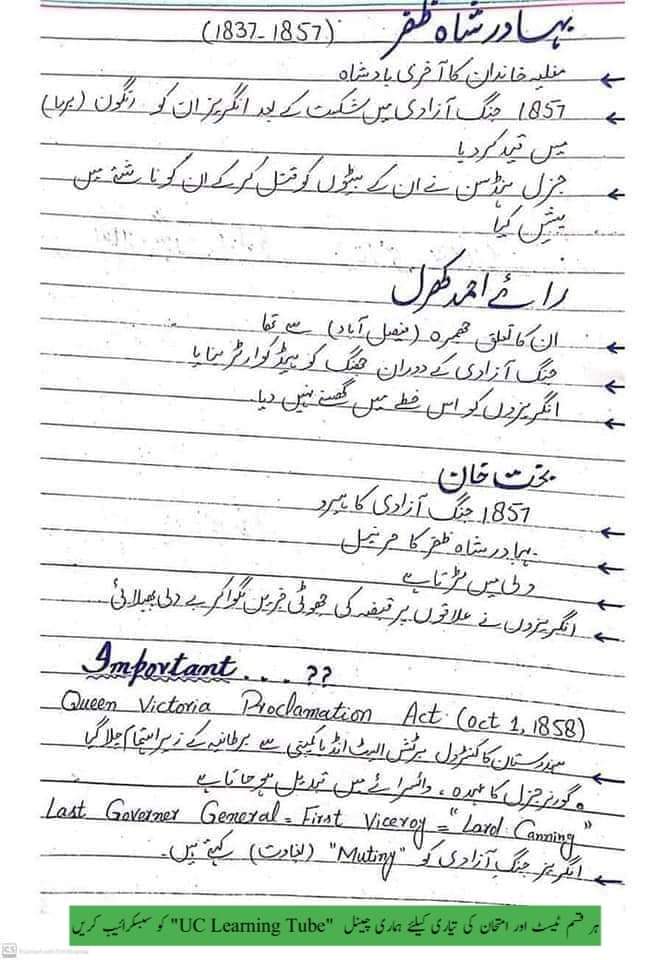 بہادر شاہ ظفر (1837-1857)
مغلیہ خاندان کا آخری بادشاہ
1857 جنگ آزادی میں شکست کے بعد انگریز ان کو رنگون (برما)
میں قید کر دیا
جنرل ہڈسن نے ان کے بیٹوں کو قتل کر کے ان کو ناشتے میں
پیش کیا
رائے احمد کھرل
ان کا تعلق جھمرہ (فیصل آباد) سے تھا
جنگ آزادی کے دوران جھنگ کو ہیڈ کوارٹر بنایا
انگریزوں کو اس خطے میں گھسنے نہیں دیا۔
بخت خان
1857 جنگ آزادی کا ہیرو
بہادر شاہ ظفر کا جرنیل
دلی میں لڑتا ہے
انگریزوں نے علاقوں پر قبضہ کی جھوٹی خبریں لگوا کر بے دلی پھیلائی
Important . . . ??
Queen Victoria Proclamation Act (oct 1, 1858)
ہندوستان کا کنٹرول برٹش ایسٹ انڈیا کمپنی سے برطانیہ کے زیر اہتمام چلا گیا
گورنر جنرل کا عہدہ، وائسرائے میں تبدیل ہو جاتا ہے
Last Governer General = First Viceroy = "Lard Canning"
انگریز جنگ آزادی کو "Mutiny" (بغاوت) کہتے ہیں۔
ہر قسم ٹیسٹ اور امتحان کی تیاری کیلئے ہماری چینل "UC Learning Tube" کو سبسکرائیب کریں
CS